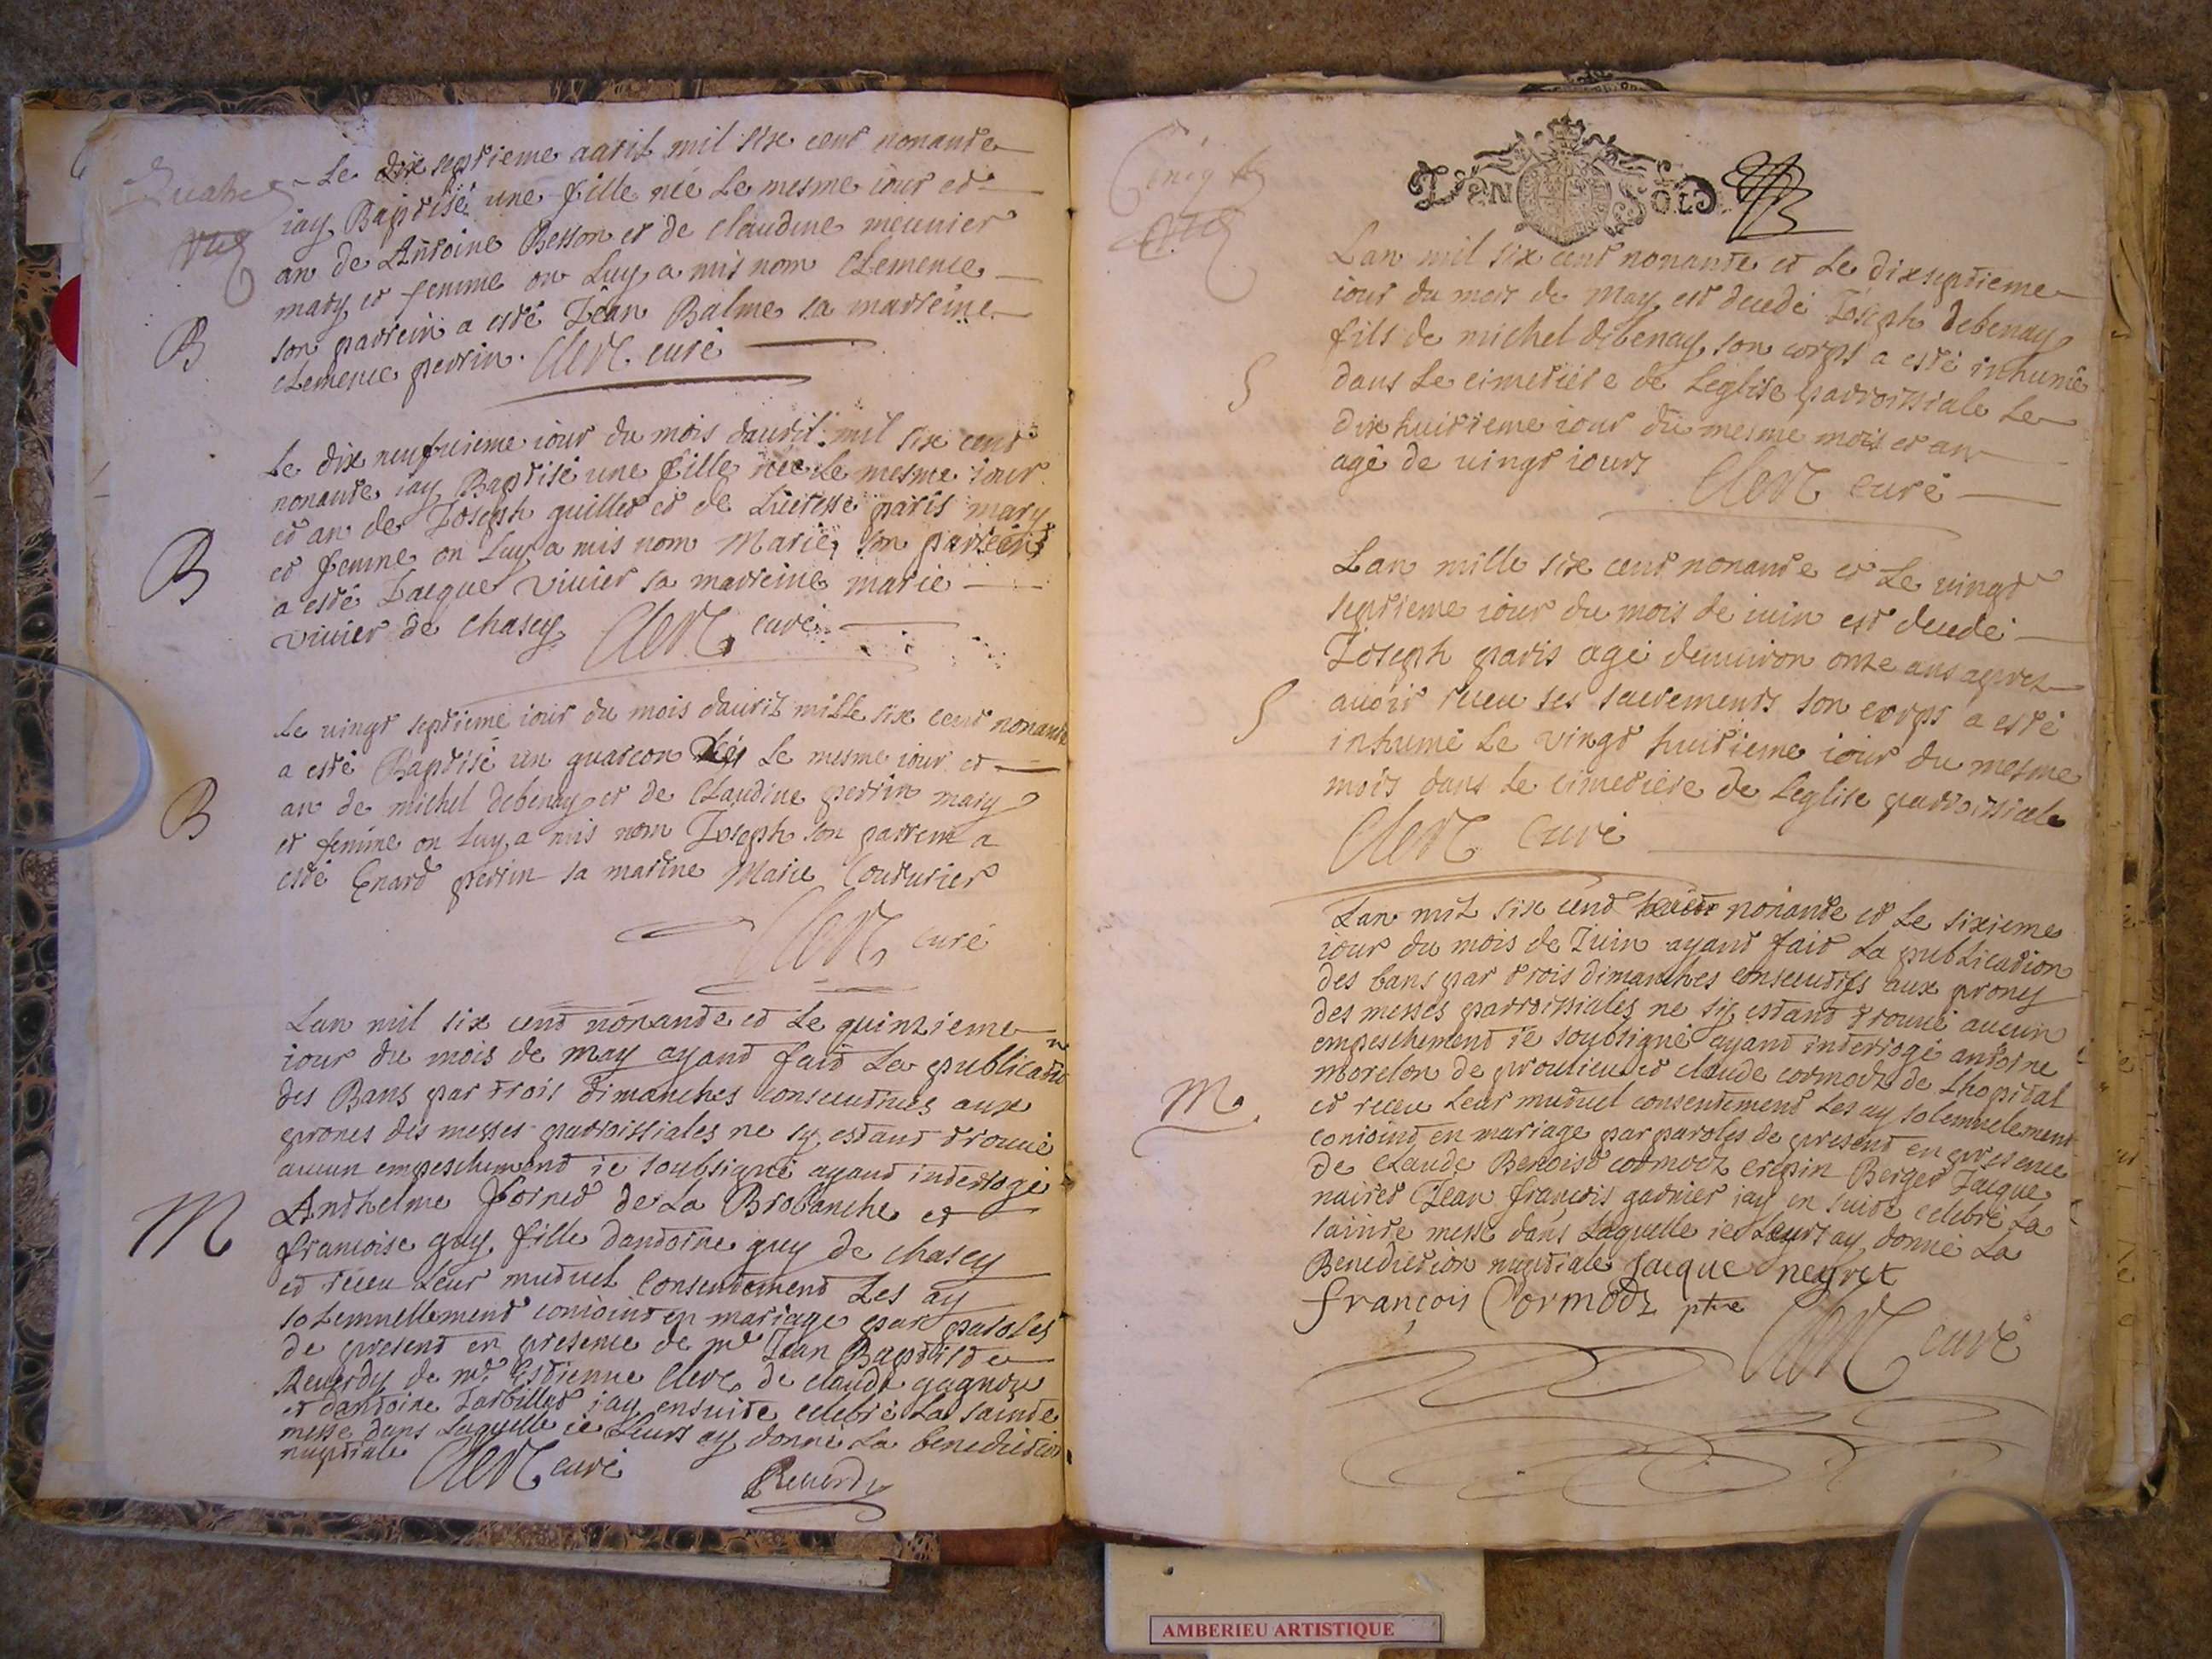 Le dix septieme auril mil six cent nonante
iay Baptisé une fille née Le mesme iour et
an de Antoine Besson et de Claudine meunier
mary et femme on Luy a mis nom Clemence
son parrein a esté Jean Balme sa marreine
Clemence perrin. Clerc curé
B
Le dix neufuieme iour du mois dauril mil six cent
nonante iay Baptisé une fille née Le mesme iour
et an de Joseph guillet et de Lucresse paris mary
et femme on Luy a mis nom Marie, son parrein
a esté Jacque Vivier sa marreine marie
vivier de chasey Clerc curé
B
Le vingt septieme iour du mois dauril mille six cent nonante
a esté Baptisé un guarcon née Le mesme iour et
an de michel debenay et de Claudine perrin mary
et femme on Luy a mis nom Joseph son parrein a
esté Enard perrin sa marine Marie Couturier
B
Clerc curé
Lan mil six cent nonante et Le quinzieme
iour du mois de may ayant fait La publication
des Bans par trois dimanches consecutives aux
prones des messes parroissiales ne sy estant trouué
aucun empeschement ie soubsigné ayant interrogé
Anthelme fornet de La Brobanche et
francoise guy fille dantoine guy de chasey
M
et receu Leur mutuel consentement Les ay
solemnellement conioint en mariage par paroles
de present en presence de mr Jean Baptiste
Reuerdy de mr Estienne Clerc de claude gagnou
et dantoine Tarbillet iay ensuite celebré La sainte
messe dans Laquelle ie Leurs ay donné La benediction
nuptiale Clerc curé
Reuerdy
VN SOLD
Lan mil six cent nonante et Le dixseptieme
iour du mois de May est decedé Joseph debenay
fils de michel debenay, son corps a esté inhumé
dans Le cimetiere de Leglise parroissiale Le
dix huitieme iour du mesme mois et an
agé de vingt iours Clerc curé
S
Lan mille six cent nonante et Le vingt
septieme iour du mois de iuin est decedé
Joseph paris agé denuiron onze ans aprez
auoir receu ses sacrements son corps a esté
inhumé Le vingt huitieme iour du mesme
mois dans Le cimetiere de Leglise parroissiale
S
Clerc Curé
Lan mil six cent nonante et Le sixieme
iour du mois de Juin ayant fait La publication
des bans par trois dimanches consecutifs aux prones
des messes parroissiales ne sy estant trouué aucun
empeschement ie soubsigné ayant interrogé antoine
morelon de proulieu et claude cormoz de Lhopital
et receu Leur mutuel consentement Les ay solemnelement
M
conioint en mariage par paroles de present en presence
de Claude Benoist cormoz crepin Berger Jacque
Jean françois garnier iay en suite celebré La
sainte messe dans Laquelle ie Leurs ay donné La
Benediction nuptiale Jacque neyret
françois Cormoz ptre Clerc curé
AMBERIEU ARTISTIQUE